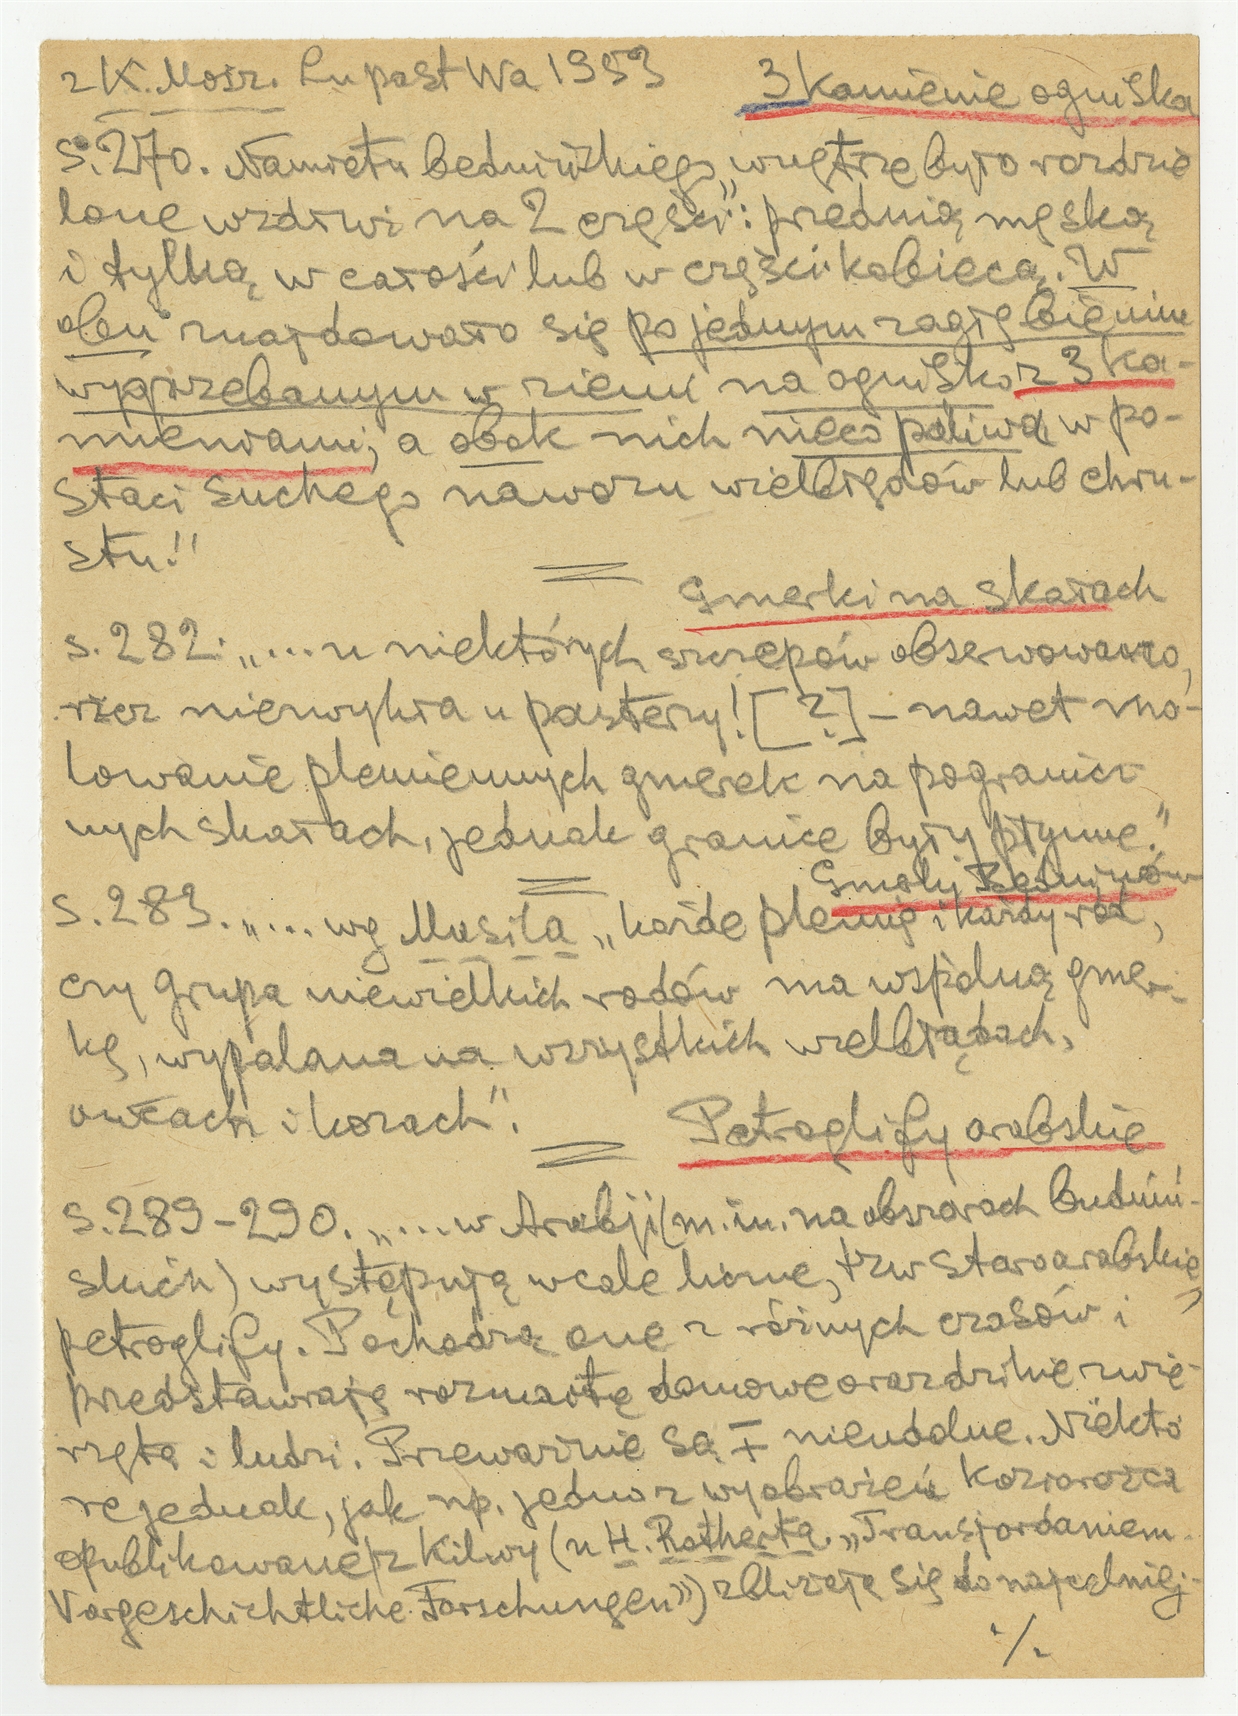 z K. Mosz. Lu past Wa 1953
3 kamienie ogniska
s. 270. Namiotu beduińskiego „wnętrze było rozdzie
lone wzdłuż na 2 części": przednią męską
i tylką w całości lub w części kobiecą. W
obu znajdowało się po jednym zagłębieniu
wygrzebanym w ziemi na ognisko z 3 ka-
mieniami, a obok nich nieco paliwa w po-
staci suchego nawozu wielbłądów lub chru-
stu."
Gmerki na skałach
s. 282: „... u niektórych szczepów obserwowano,
rzecz niezwykła u pasterzy! [?] – nawet ma-
lowanie plemiennych gmerek na pogranicz
nych skałach, jednak granice były płynne."
Gmerki Beduinów
s. 283. „... wg Musila „każde plemię i każdy ród,
czy grupa niewielkich rodów ma wspólną gmer-
kę, wypalaną na wszystkich wielbłądach,
owcach i kozach".
Petroglify arabskie
s. 289-290. „... w Arabji (m. in. na obszarach beduiń-
skich) występują wcale liczne, tzw staroarabskie,
petroglify. Pochodzą one z różnych czasów i
przedstawiają rozmaite domowe oraz dzikie zwie-
rzęta i ludzi. Przeważnie są ∓ nieudolne. Niektó
re jednak, jak np. jedno z wyobrażeń koziorożca
opublikowane z Kilwy (u H. Rotherta „Transjordanien.
Vorgeschichtliche Forschungen") zbliżają się do najcelniej-
./.